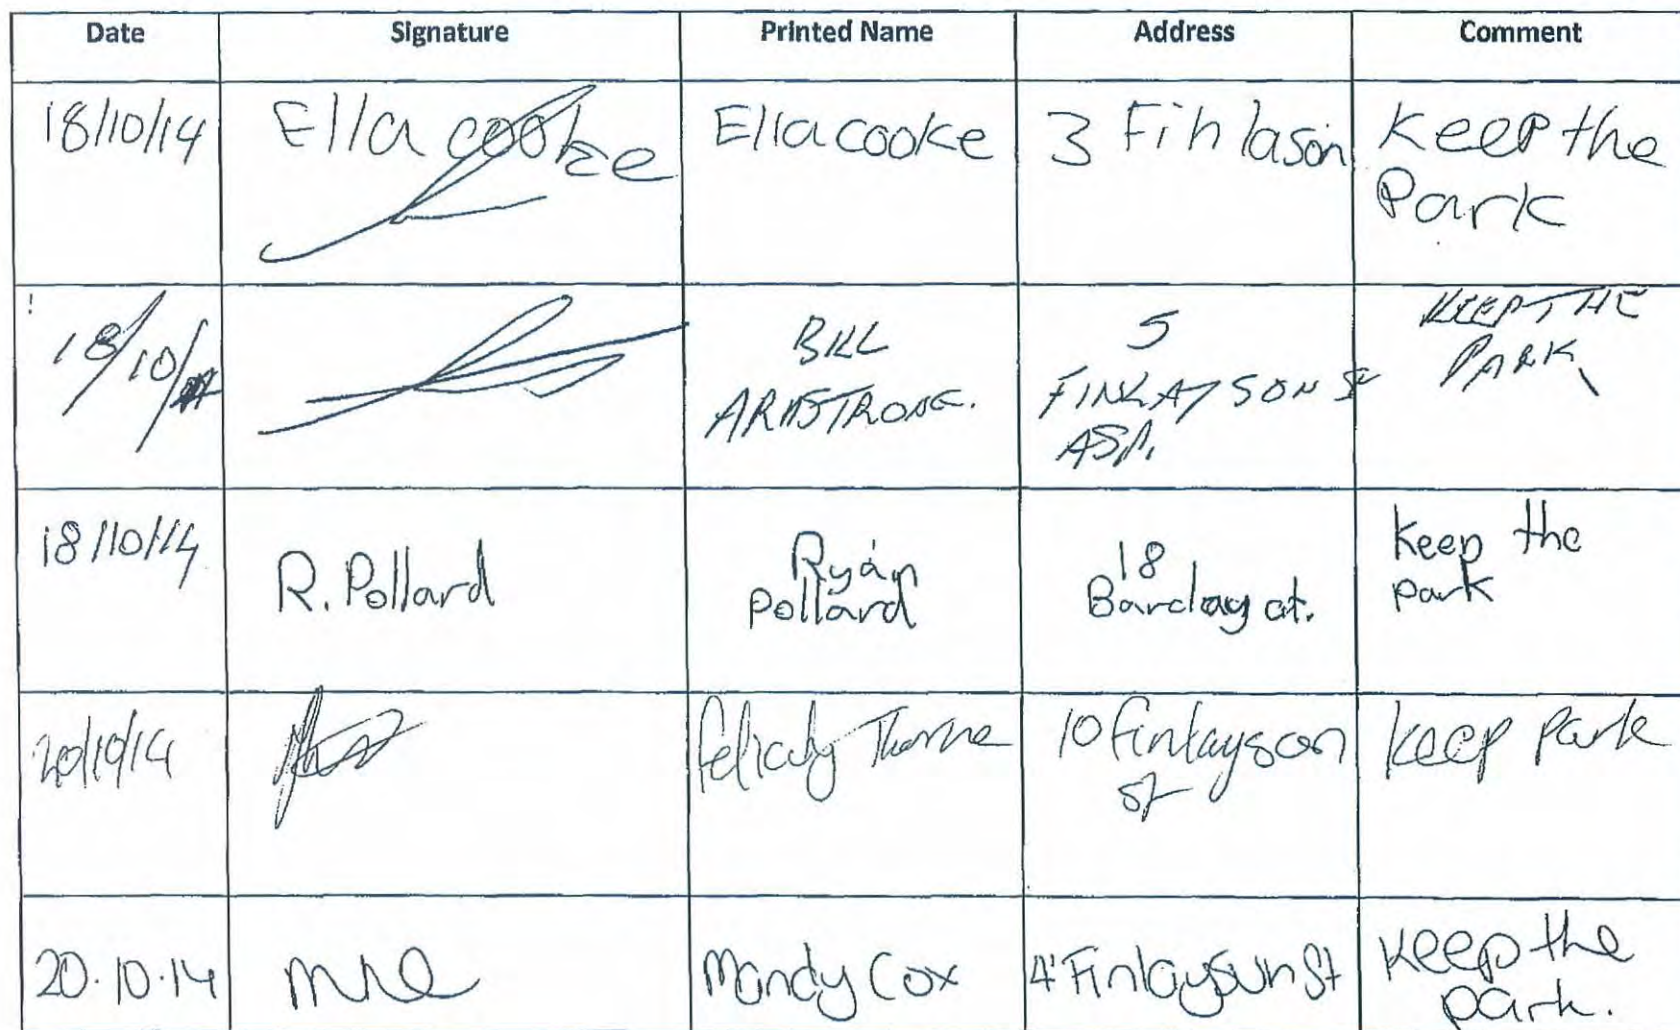 Date Signature Printed Name Address Comment
18/10/14 Ella cooke Ella cooke 3 Finlason Keep the
Park
18/10/14 BILL 5 KEEP THE
ARMSTRONG. FINLAYSON ST PARK
ASP.
18/10/14 R. Pollard Ryan 18 keep the
pollard Barclay ct. park
20/10/14 felicity Thorne 10 finlayson keep park
st
20.10.14 Mandy Cox 4 Finlayson St Keep the
park.